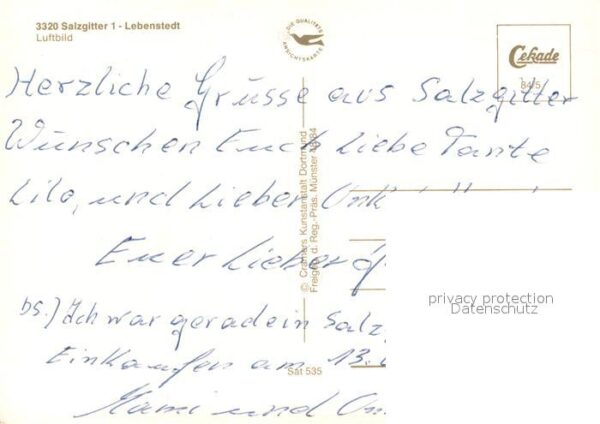 3320 Salzgitter 1 - Lebenstedt
Luftbild
DIE QUALITÄTS
ANSICHTSKARTE
Cekade
84/5
Herzliche Grüsse aus Salzgitter
Wünschen Euch Liebe Tante
Lilo, und Lieber Onk
Euer Lieber
bs.) Ich war gerade in Salz
Einkaufen am 13.
Mami und On
© Cramers Kunstanstalt Dortmund
Freigabe d. Reg.-Präs. Münster
Sat 535
privacy protection
Datenschutz